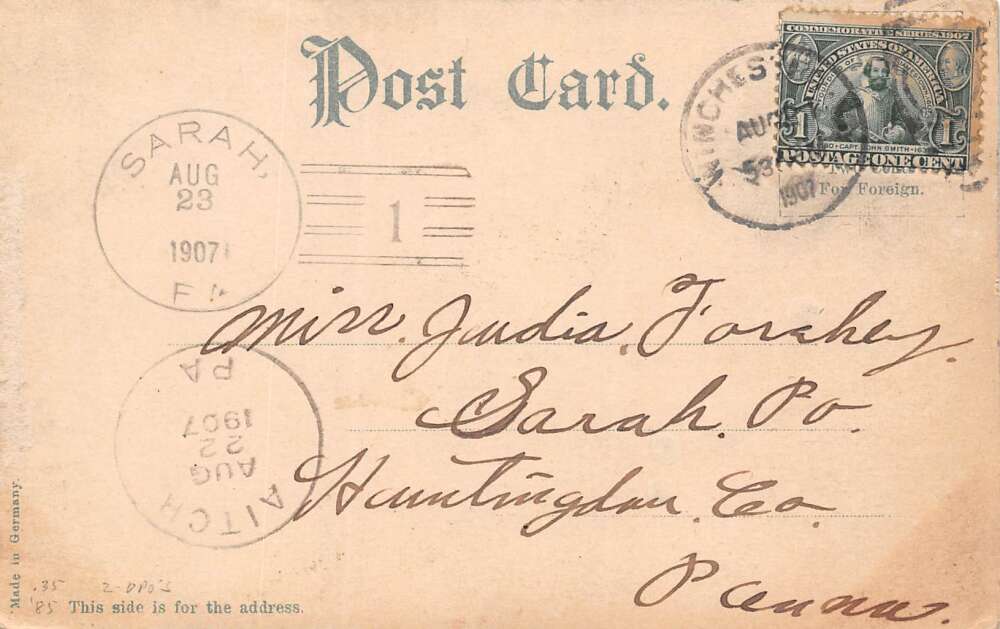 Post Card.
SARAH,
AUG
23
1907
PA
1
WINCHEST
AUG
1907
COMMEMORATIVE SERIES 1907
UNITED STATES OF AMERICA
1 1
CAPT. JOHN SMITH
POSTAGE ONE CENT
For Foreign.
Miss. Judia. Forshey.
Sarah. Po.
Huntingdon. Co.
Penna.
AITCH
AUG
22
1907
PA
Made in Germany.
.35 2-DPO's
'85
This side is for the address.